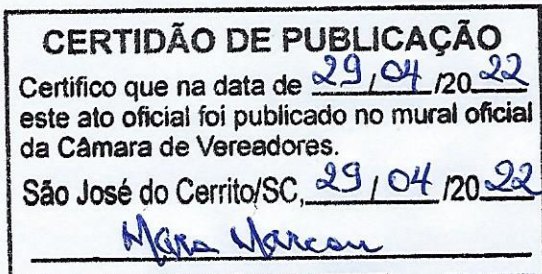 CERTIDÃO DE PUBLICAÇÃO
Certifico que na data de 29/04/2022
este ato oficial foi publicado no mural oficial
da Câmara de Vereadores.
São José do Cerrito/SC, 29/04/2022
Mara Marcon